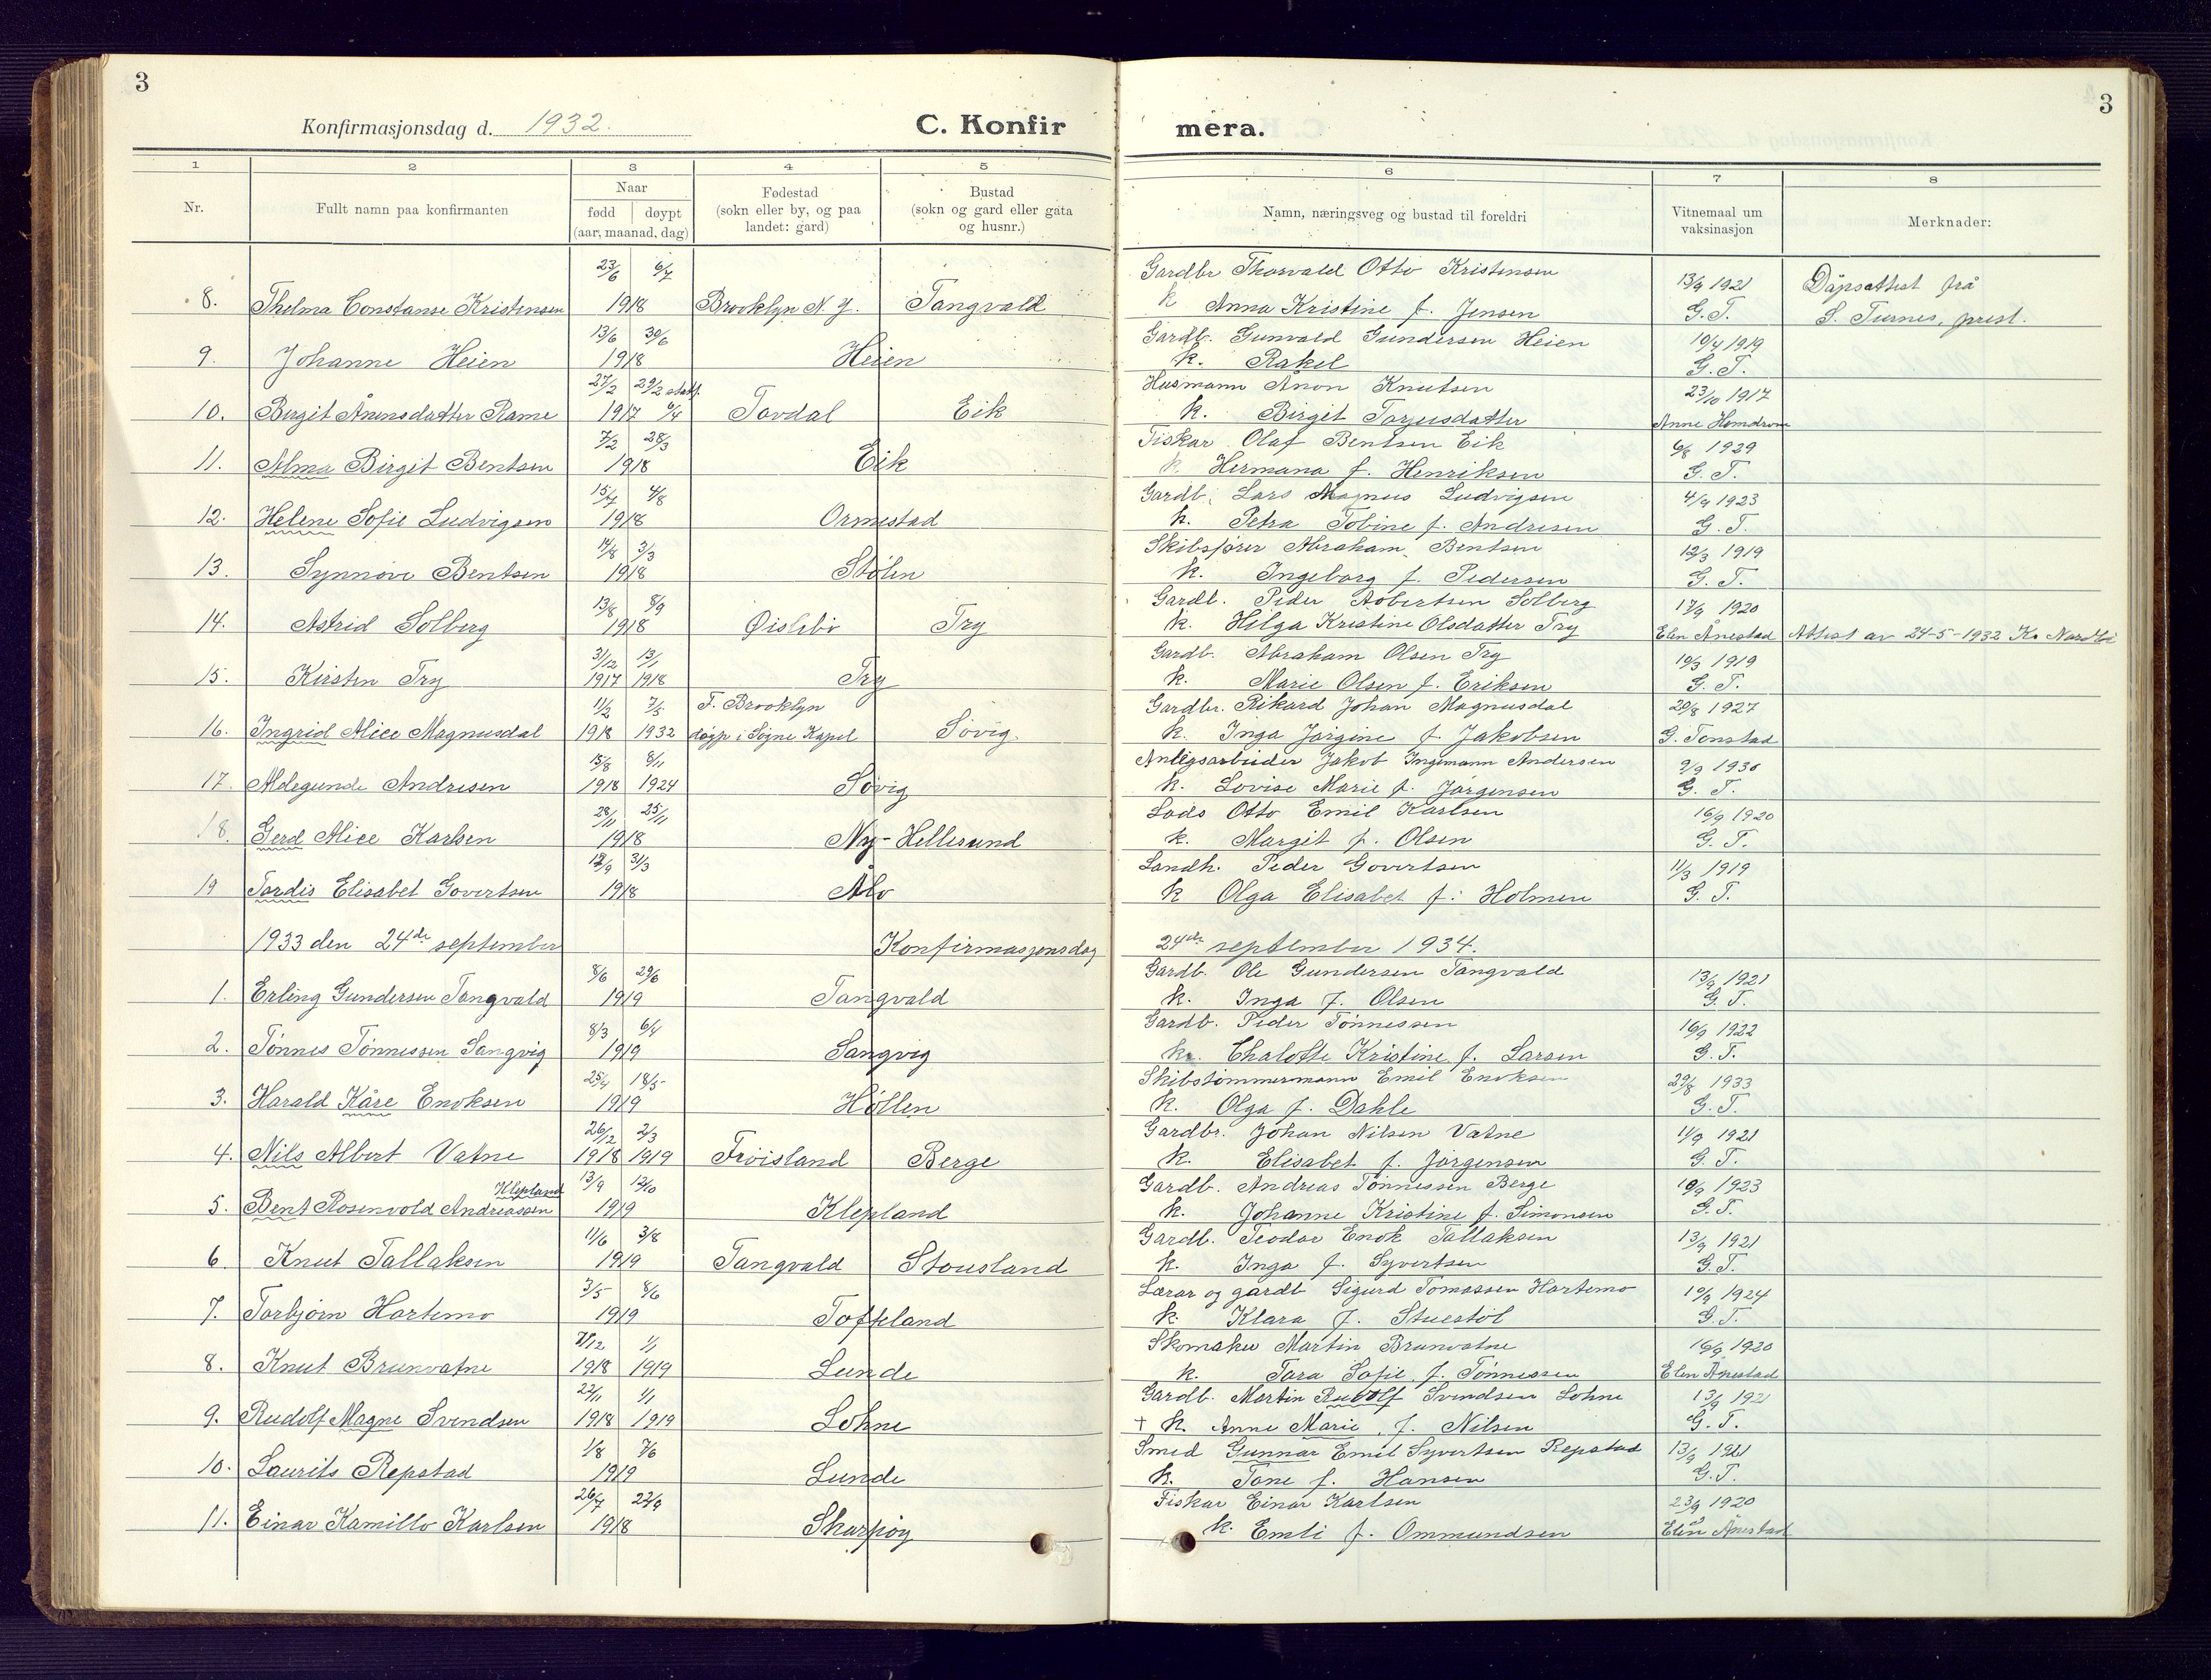 3
Konfirmasjonsdag d. 1932.
C. Konfir
mera.
3
1 2 3 4 5 6 7 8
Nr.
Fullt namn paa konfirmanten
Naar
fødd døypt
(aar, maanad, dag)
Fødestad
(sokn eller by, og paa
landet: gard)
Bustad
(sokn og gard eller gata
og husnr.)
Namn, næringsveg og bustad til foreldri
Vitnemaal um
vaksinasjon
Merknader:
23/6 6/7 Gardbr Thorvald Otto Kristensen 13/9 1921 Dåpsattest frå
8. Thelma Constanse Kristensen 1918 Brooklyn N.Y. Tangvald k Anna Kristine f. Jensen G. T. S. Turnes, prest.
13/6 30/6 Gardb. Gunvald Gundersen Heien 10/4 1919
9. Johanne Heien 1918 Heien k. Rakel G. T.
27/2 29/2 Husmann Ånon Knutsen 23/10 1917
10. Birgit Ånensdatter Rame 1917 Tovdal Eik k. Birgit Tarjusdatter Anne Homdrom
7/2 28/3 Fiskar Olaf Bentsen Eik 6/8 1929
11. Alma Birgit Bentsen 1918 Eik k. Hermana f. Henriksen G. T.
15/7 4/8 Gardb. Lars Magnus Ludvigsen 4/9 1923
12. Helene Sofie Ludvigsen 1918 Ormestad k. Petra Tobine f. Andresen G. T.
14/8 3/3 Skibsfører Abraham Bentsen 12/3 1919
13. Synnøve Bentsen 1918 Stølen k. Ingeborg f. Pedersen G. T.
13/8 8/9 Gardb. Peder Robertsen Solberg 17/9 1920
14. Astrid Solberg 1918 Øislebø Try k. Helga Kristine Olsdatter Try Elen Ånestad Attest av 24-5-1932 Kr. Nordbø
31/12 13/1 Gardb. Abraham Olsen Try 10/3 1919
15. Kirsten Try 1917 1918 Try k. Marie Olsen f. Eriksen G. T.
11/2 7/5 F. Brooklyn Gardbr. Rikard Johan Magnusdal 20/8 1927
16. Ingrid Alice Magnusdal 1918 1932 døyp i Søgne Kapel Søvig. k. Inga Jørgine f. Jakobsen G. Tonstad
15/8 8/11 Anlegsarbeider Jakob Ingemann Andersen 9/9 1930
17. Aldegunde Andresen 1918 1924 Søvig k. Lovise Marie f. Jørgensen G. T.
28/11 25/11 Lods Otto Emil Karlsen 16/9 1920
18. Gerd Alice Karlsen 1918 Ny-Hellesund k. Margit f. Olsen G. T.
19/9 31/3 Landh. Peder Govertsen 11/3 1919
19 Tordis Elisabet Govertsen 1918 Alo k Olga Elisabet f. Holmen G. T.
1933 den 24de september Konfirmasjonsdag 24de september 1934.
8/6 29/6 Gardb. Ole Gundersen Tangvald 13/9 1921
1. Erling Gundersen Tangvald 1919 Tangvald k. Inga f. Olsen G. T.
8/3 6/4 Gardb. Peder Tønnessen 16/9 1922
2. Tønnes Tønnessen Sangvig 1919 Sangvig k. Chalotte Kristine f. Larsen G. T.
25/4 18/5 Skibstømmermann Emil Enoksen 29/8 1933
3. Harald Kåre Enoksen 1919 Höllen k. Olga f. Dahle G. T.
26/12 2/3 Gardbr. Johan Nilsen Vatne 11/9 1921
4. Nils Albert Vatne 1918 1919 Frøisland Berge k. Elisabet f. Jørgensen G. T.
Klepland 13/9 12/10 Gardb. Andreas Tønnessen Berge 10/9 1923
5. Bent Rosenvold Andreassen 1919 Klepland k. Johanne Kristine f. Simonsen G. T.
11/6 3/8 Gardb. Teodor Enok Tallaksen 13/9 1921
6. Knut Tallaksen 1919 Tangvald Stousland k. Inga f. Syvertsen G. T.
3/5 8/6 Lærar og gardb Sigurd Tomassen Hartemo 10/9 1924
7. Torbjørn Hortemo 1919 Tofteland k. Klara f. Stuestøl G. T.
1/1 Skomaker Martin Brunvatne 16/9 1920
8. Knut Brunvatne 1918 1919 Lunde k. Tora Sofie f. Tønnessen Elen Ånestad
22/11 1/1 Gardb. Martin Rudolf Svendsen Lohne 13/9 1921
9. Rudolf Magne Svendsen 1918 1919 Lohne † k. Anne Marie f. Nilsen G. T.
1/8 7/6 Smed Gunnar Emil Syvertsen Repstad 13/9 1921
10. Laurits Repstad 1919 Lunde k. Tone f. Hansen G. T.
26/7 22/9 Fiskar Einar Karlsen 23/9 1920
11. Einar Kamillo Karlsen 1918 Skarpøy k. Emli f. Ommundsen Elen Ånestad